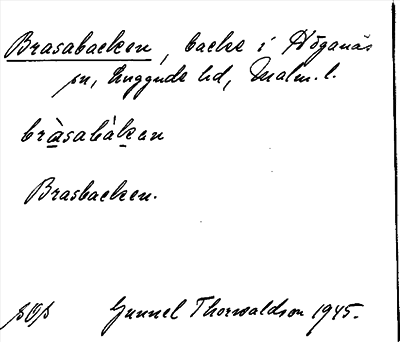 Brasabacken, backe i Höganäs
sn, Luggude hd, Malm. l.
bràsabákan
Brasbacken.
Gunnel Thorwaldson 1945.